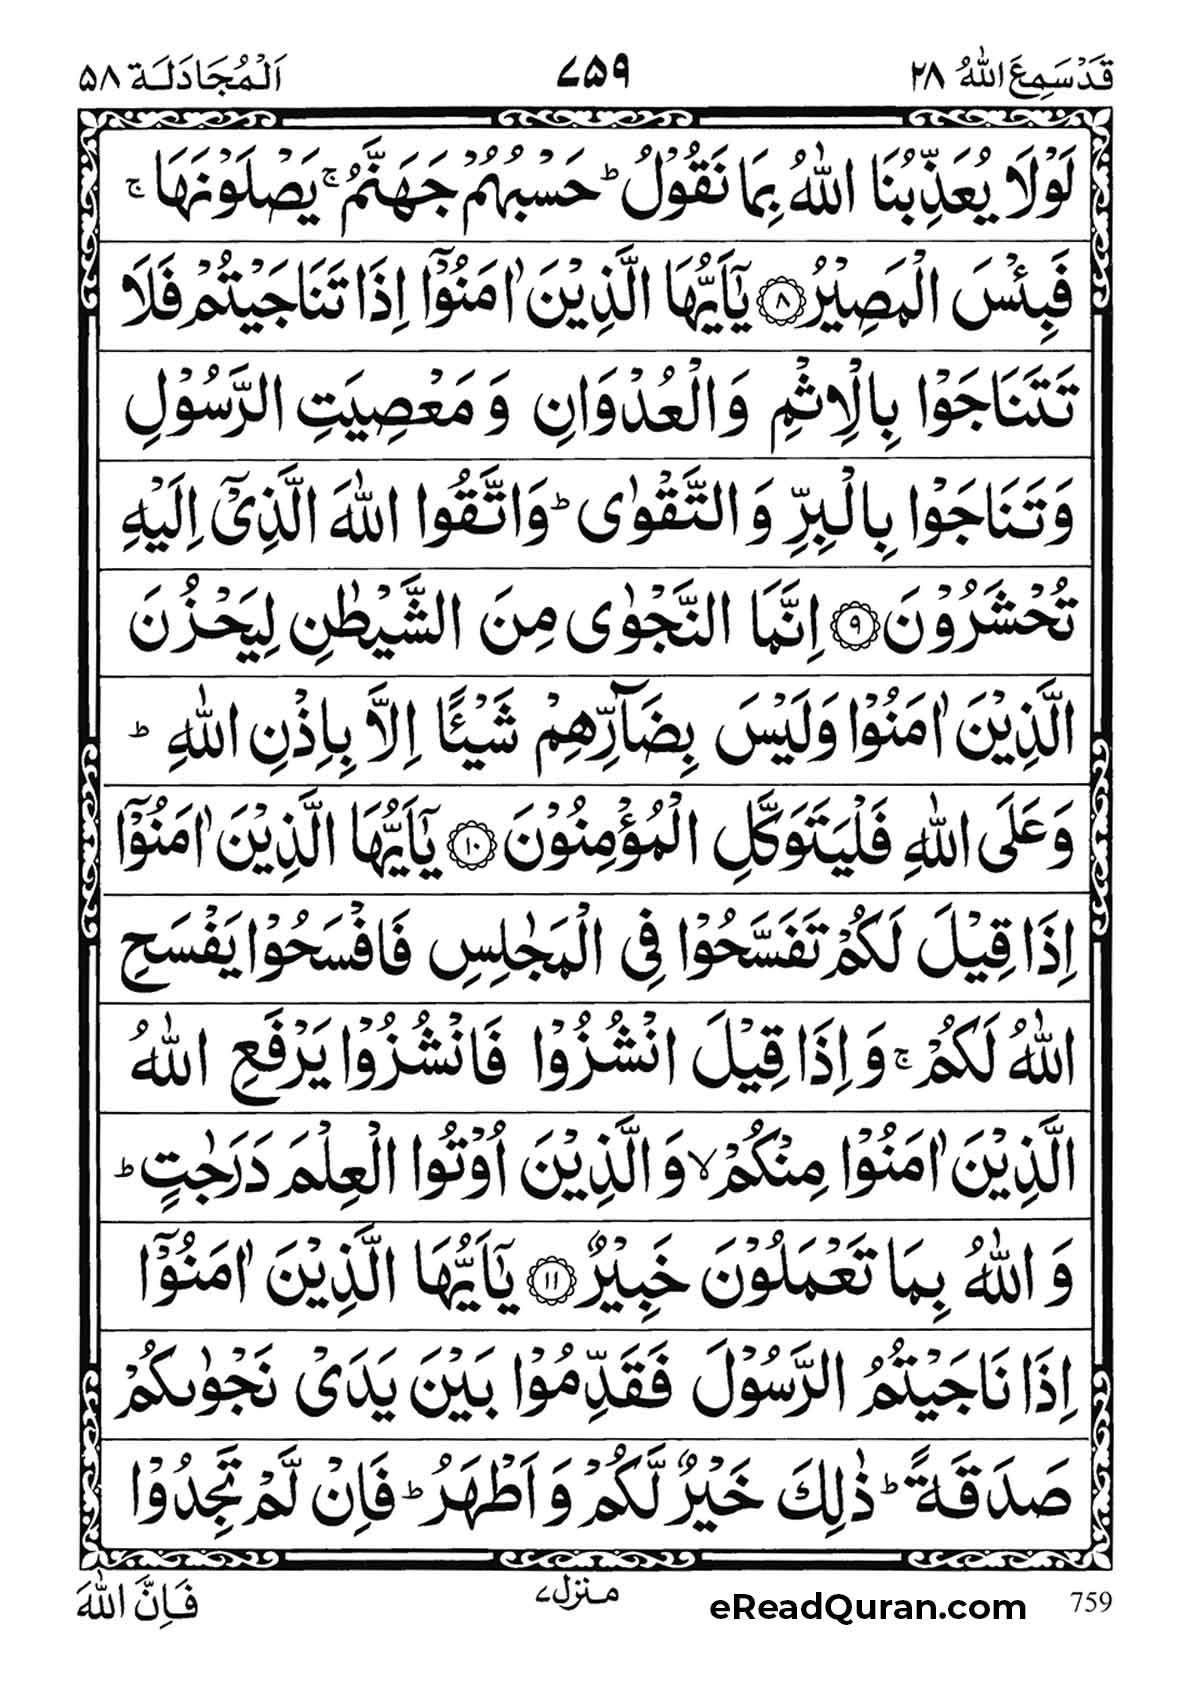 قَدْ سَمِعَ اللّٰهُ ۲۸ ۷۵۹ اَلْمُجَادَلَة ۵۸
لَوْلَا يُعَذِّبُنَا اللّٰهُ بِمَا نَقُوْلُ ؕ حَسْبُهُمْ جَهَنَّمُ ۚ يَصْلَوْنَهَا ۚ
فَبِئْسَ الْمَصِيْرُ ۝۸ يٰۤاَيُّهَا الَّذِيْنَ اٰمَنُوْۤا اِذَا تَنَاجَيْتُمْ فَلَا
تَتَنَاجَوْا بِالْاِثْمِ وَالْعُدْوَانِ وَمَعْصِيَتِ الرَّسُوْلِ
وَتَنَاجَوْا بِالْبِرِّ وَالتَّقْوٰى ؕ وَاتَّقُوا اللّٰهَ الَّذِيْۤ اِلَيْهِ
تُحْشَرُوْنَ ۝۹ اِنَّمَا النَّجْوٰى مِنَ الشَّيْطٰنِ لِيَحْزُنَ
الَّذِيْنَ اٰمَنُوْا وَلَيْسَ بِضَآرِّهِمْ شَيْـًٔا اِلَّا بِاِذْنِ اللّٰهِ ؕ
وَعَلَى اللّٰهِ فَلْيَتَوَكَّلِ الْمُؤْمِنُوْنَ ۝۱۰ يٰۤاَيُّهَا الَّذِيْنَ اٰمَنُوْۤا
اِذَا قِيْلَ لَكُمْ تَفَسَّحُوْا فِى الْمَجٰلِسِ فَافْسَحُوْا يَفْسَحِ
اللّٰهُ لَكُمْ ۚ وَاِذَا قِيْلَ انْشُزُوْا فَانْشُزُوْا يَرْفَعِ اللّٰهُ
الَّذِيْنَ اٰمَنُوْا مِنْكُمْ ۙ وَالَّذِيْنَ اُوْتُوا الْعِلْمَ دَرَجٰتٍ ؕ
وَاللّٰهُ بِمَا تَعْمَلُوْنَ خَبِيْرٌ ۝۱۱ يٰۤاَيُّهَا الَّذِيْنَ اٰمَنُوْۤا
اِذَا نَاجَيْتُمُ الرَّسُوْلَ فَقَدِّمُوْا بَيْنَ يَدَىْ نَجْوٰىكُمْ
صَدَقَةً ؕ ذٰلِكَ خَيْرٌ لَّكُمْ وَاَطْهَرُ ؕ فَاِنْ لَّمْ تَجِدُوْا
759 eReadQuran.com منزل ۷ فَاِنَّ اللّٰهَ